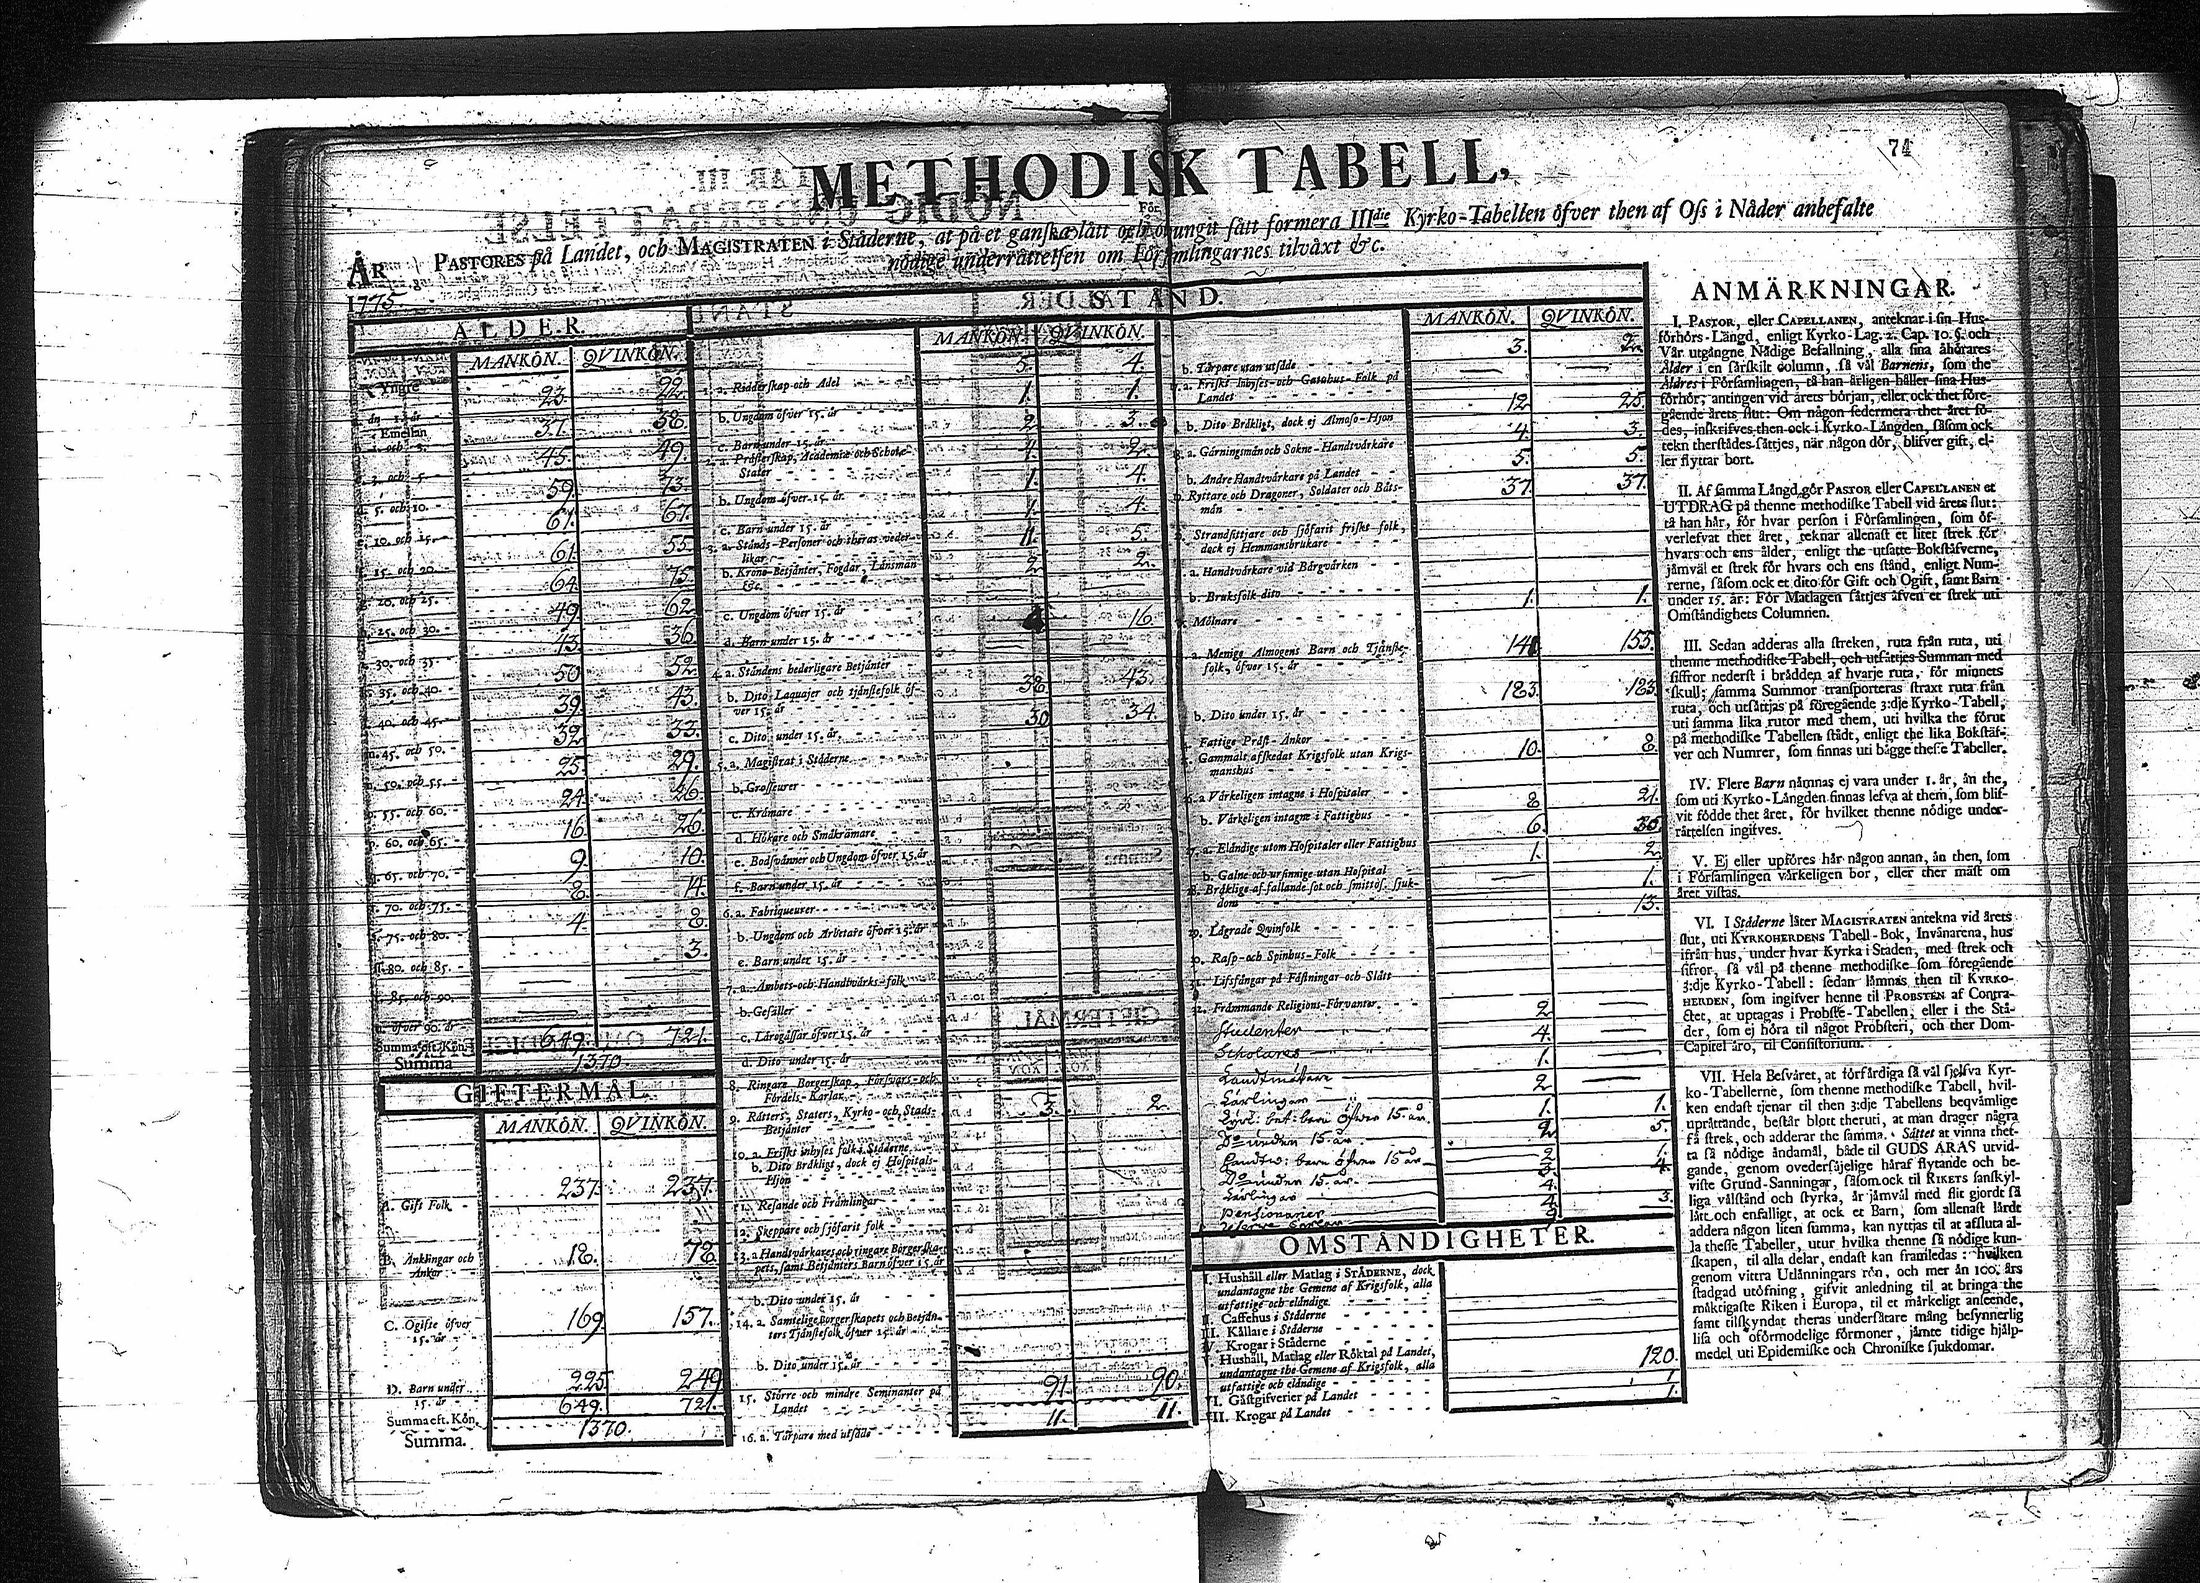 74
METHODISK TABELL,
För
PASTORES på Landet, och MAGISTRATEN i Städerne, at på et ganska lätt och otvungit sätt formera IIIdie Kyrko-Tabellen öfver then af Oss i Nåder anbefalte
nödige underrättelsen om Församlingarnes tilväxt &c.
ÅR
1775.
ÅLDER.
MANKÖN. QVINKÖN.
Yngre än 1. år 23. 22.
Emellan 1. och 3. 37. 38.
3. och 5. 45. 49.
d. 5. och 10. 59. 73.
e. 10. och 15. 61. 67.
15. och 20. 61. 55.
20. och 25. 64. 75.
25. och 30. 49. 62.
30. och 35. 43. 36.
35. och 40. 50. 52.
40. och 45. 39. 43.
45. och 50. 32. 33.
50. och 55. 25. 29.
55. och 60. 24. 26.
60. och 65. 16. 26.
65. och 70. 9. 10.
70. och 75. 8. 14.
75. och 80. 4. 8.
80. och 85. 3.
85. och 90.
öfver 90. år
Summa eft. Kön. 649. 721.
Summa 1370.
GIFTERMÅL.
MANKÖN. QVINKÖN.
A. Gift Folk 237. 237.
B. Änklingar och Änkor 18. 78.
C. Ogifte öfver 15. år 169 157.
D. Barn under 15. år 225. 249
Summa eft. Kön. 649. 721.
Summa. 1370.
STÅND.
MANKÖN. QVINKÖN.
1. a. Ridderskap och Adel 5. 4.
b. Ungdom öfver 15. år 1. 1.
c. Barn under 15. år 2. 3.
2. a. Prästerskap, Academiæ och Schole-Stater 1. 2.
b. Ungdom öfver 15. år 1. 4.
c. Barn under 15. år 1. 4.
3. a. Stånds-Personer och theras vederlikar 11. 5.
b. Krono-Betjänter, Fogdar, Länsmän &c. 2. 2.
c. Ungdom öfver 15. år
d. Barn under 15. år 16.
4. a. Ståndens hederligare Betjänter
b. Dito Laquajer och tjänstefolk öfver 15. år 38. 43.
c. Dito under 15. år 30 34.
5. a. Magistrat i Städerne
b. Grosseurer
c. Krämare
d. Hökare och Småkrämare
e. Bodsvänner och Ungdom öfver 15. år
f. Barn under 15. år
6. a. Fabriqueurer
b. Ungdom och Arbetare öfver 15. år
c. Barn under 15. år
7. a. Ämbets- och Handtvärks-folk
b. Gesäller
c. Lärogässar öfver 15. år
d. Dito under 15. år
8. Ringare Borgerskap, Försvars- och Fördels-Karlar
9. Rätters, Staters, Kyrko- och Stads-Betjänter 3. 2.
10. a. Friskt inhyses folk i Städerne
b. Dito Bräkligt, dock ej Hospitals-Hjon
11. Resande och Främlingar
12. Skeppare och sjöfarit folk
13. a. Handtvärkares och ringare Borgerskapets, samt Betjänters Barn öfver 15. år
b. Dito under 15. år
14. a. Samtelige Borgerskapets och Betjänters Tjänstefolk öfver 15. år
b. Dito under 15. år
15. Större och mindre Hemmanter på Landet 91. 90.
16. a. Tårpare med utsäde 11. 11.
MANKÖN. QVINKÖN.
b. Tårpare utan utsäde 3. 2.
a. Friskt Inhyses- och Gatuhus-Folk på Landet 12. 25.
b. Dito Bräkligt, dock ej Almoso-Hjon 4. 3.
a. Gärningsmän och Sokne-Handtvärkare 5. 5.
b. Andre Handtvärkare på Landet
Ryttare och Dragoner, Soldater och Båtsmän 37. 37.
Strandsittjare och sjöfarit friskt folk, dock ej Hemmansbrukare
a. Handtvärkare vid Bärgvärken
b. Bruksfolk dito
Mölnare 1. 1.
a. Menige Almogens Barn och Tjänstefolk, öfver 15. år 148. 155.
b. Dito under 15. år 183. 183.
Fattige Präst-Änkor
Gammalt afskedat Krigsfolk utan Krigsmanshus 10. 8.
a. Värkeligen intagne i Hospitaler
b. Värkeligen intagne i Fattighus 8 21.
a. Eländige utom Hospitaler eller Fattighus 6. 30.
b. Galne och ursinnige utan Hospital 1. 2.
Bräklige af fallande sot och smittos. sjukdom 1.
Lägrade Qvinfolk 13.
Rasp- och Spinhus-Folk
Lifsfångar på Fästningar och Slått
Främmande Religions-Förvanter
Studenter 2.
Scholares 4.
Landtmätare 1.
Lärlingar 2
öfver 15. år. 1. 1.
Do under 15 år. 2 5.
barn öfver 15 år 2 1.
Do under 15. år. 3. 4.
Lärlingar 4.
Pensionairer 4 3.
OMSTÄNDIGHETER.
I. Hushåll eller Matlag i STÄDERNE, dock undantagne the Gemene af Krigsfolk, alla utfattige och eländige
II. Caffehus i Städerne
III. Källare i Städerne
IV. Krogar i Städerne
Hushåll, Matlag eller Röktal på Landet, undantagne the Gemene af Krigsfolk, alla utfattige och eländige 120.
VI. Gästgifverier på Landet 1
VII. Krogar på Landet 1.
ANMÄRKNINGAR.
I. PASTOR, eller CAPELLANEN, anteknar i sin Hus-
förhörs-Längd, enligt Kyrko-Lag. 2. Cap. 10. §. och
Vår utgångne Nådige Befallning, alla sina åhörares
Ålder i en särskilt column, så väl Barnens, som the
Äldres i Församlingen, tå han årligen håller sina Hus-
förhör; antingen vid årets början, eller ock thet före-
gående årets slut: Om någon sedermera thet året fö-
des, inskrifves then ock i Kyrko-Längden, såsom ock
tekn therstädes sättjes, när någon dör, blifver gift, el-
ler flyttar bort.
II. Af samma Längd gör PASTOR eller CAPELLANEN et
UTDRAG på thenne methodiske Tabell vid årets slut:
tå han här, för hvar person i Församlingen, som öf-
verlefvat thet året, teknar allenast et litet strek för
hvars och ens ålder, enligt the utsatte Bokstäfverne,
jämväl et strek för hvars och ens stånd, enligt Num-
rerne, såsom ock et dito för Gift och Ogift, samt Barn
under 15. år: För Matlagen sättjes äfven et strek uti
Omständighets Columnen.
III. Sedan adderas alla streken, ruta från ruta, uti
thenne methodiske Tabell, och utsättjes Summan med
siffror nederst i brädden af hvarje ruta, för minnets
skull; samma Summor transporteras straxt ruta från
ruta, och utsättjas på föregående 3:dje Kyrko-Tabell,
uti samma lika rutor med them, uti hvilka the förut
på methodiske Tabellen städt, enligt the lika Bokstäf-
ver och Numrer, som finnas uti bägge thesse Tabeller.
IV. Flere Barn nämnas ej vara under 1. år, än the,
som uti Kyrko-Längden finnas lefva at them, som blif-
vit födde thet året, för hvilket thenne nödige under-
rättelsen ingifves.
V. Ej eller upföres här någon annan, än then, som
i Församlingen värkeligen bor, eller ther mäst om
året vistas.
VI. I Städerne låter MAGISTRATEN antekna vid årets
slut, uti KYRKOHERDENS Tabell-Bok, Invånarena, hus
ifrån hus, under hvar Kyrka i Staden, med strek och
sifror, så väl på thenne methodiske som föregående
3:dje Kyrko-Tabell: sedan lämnas then til KYRKO-
HERDEN, som ingifver henne til PROBSTEN af Contra-
ctet, at uptagas i Probste-Tabellen, eller i the Stä-
der, som ej höra til något Probsteri, och ther Dom-
Capitel äro, til Consistorium.
VII. Hela Besväret, at förfärdiga så väl sjelfva Kyr-
ko-Tabellerne, som thenne methodiske Tabell, hvil-
ken endast tjenar til then 3:dje Tabellens beqvämlige
uprättande, består blott theruti, at man drager några
få strek, och adderar the samma. Sättet at vinna thet-
ta så nödige ändamål, både til GUDS ÄRAS utvid-
gande, genom ovedersäjelige häraf flytande och be-
viste Grund-Sanningar, såsom ock til RIKETS sanskyl-
liga välstånd och styrka, är jämväl med flit gjordt så
lätt och enfalligt, at ock et Barn, som allenast lärdt
addera någon liten summa, kan nyttjas til at afsluta al-
la thesse Tabeller, utur hvilka thenne så nödige kun-
skapen, til alla delar, endast kan framledas: hvilken
genom vittra Utlänningars rön, och mer än 100. års
stadgad utöfning, gifvit anledning til at bringa the
mäktigaste Riken i Europa, til et märkeligt anseende,
samt tilskyndat theras undersåtare mång besynnerlig
lisa och oförmodelige förmoner, jämte tidige hjälp-
medel uti Epidemiske och Chroniske sjukdomar.